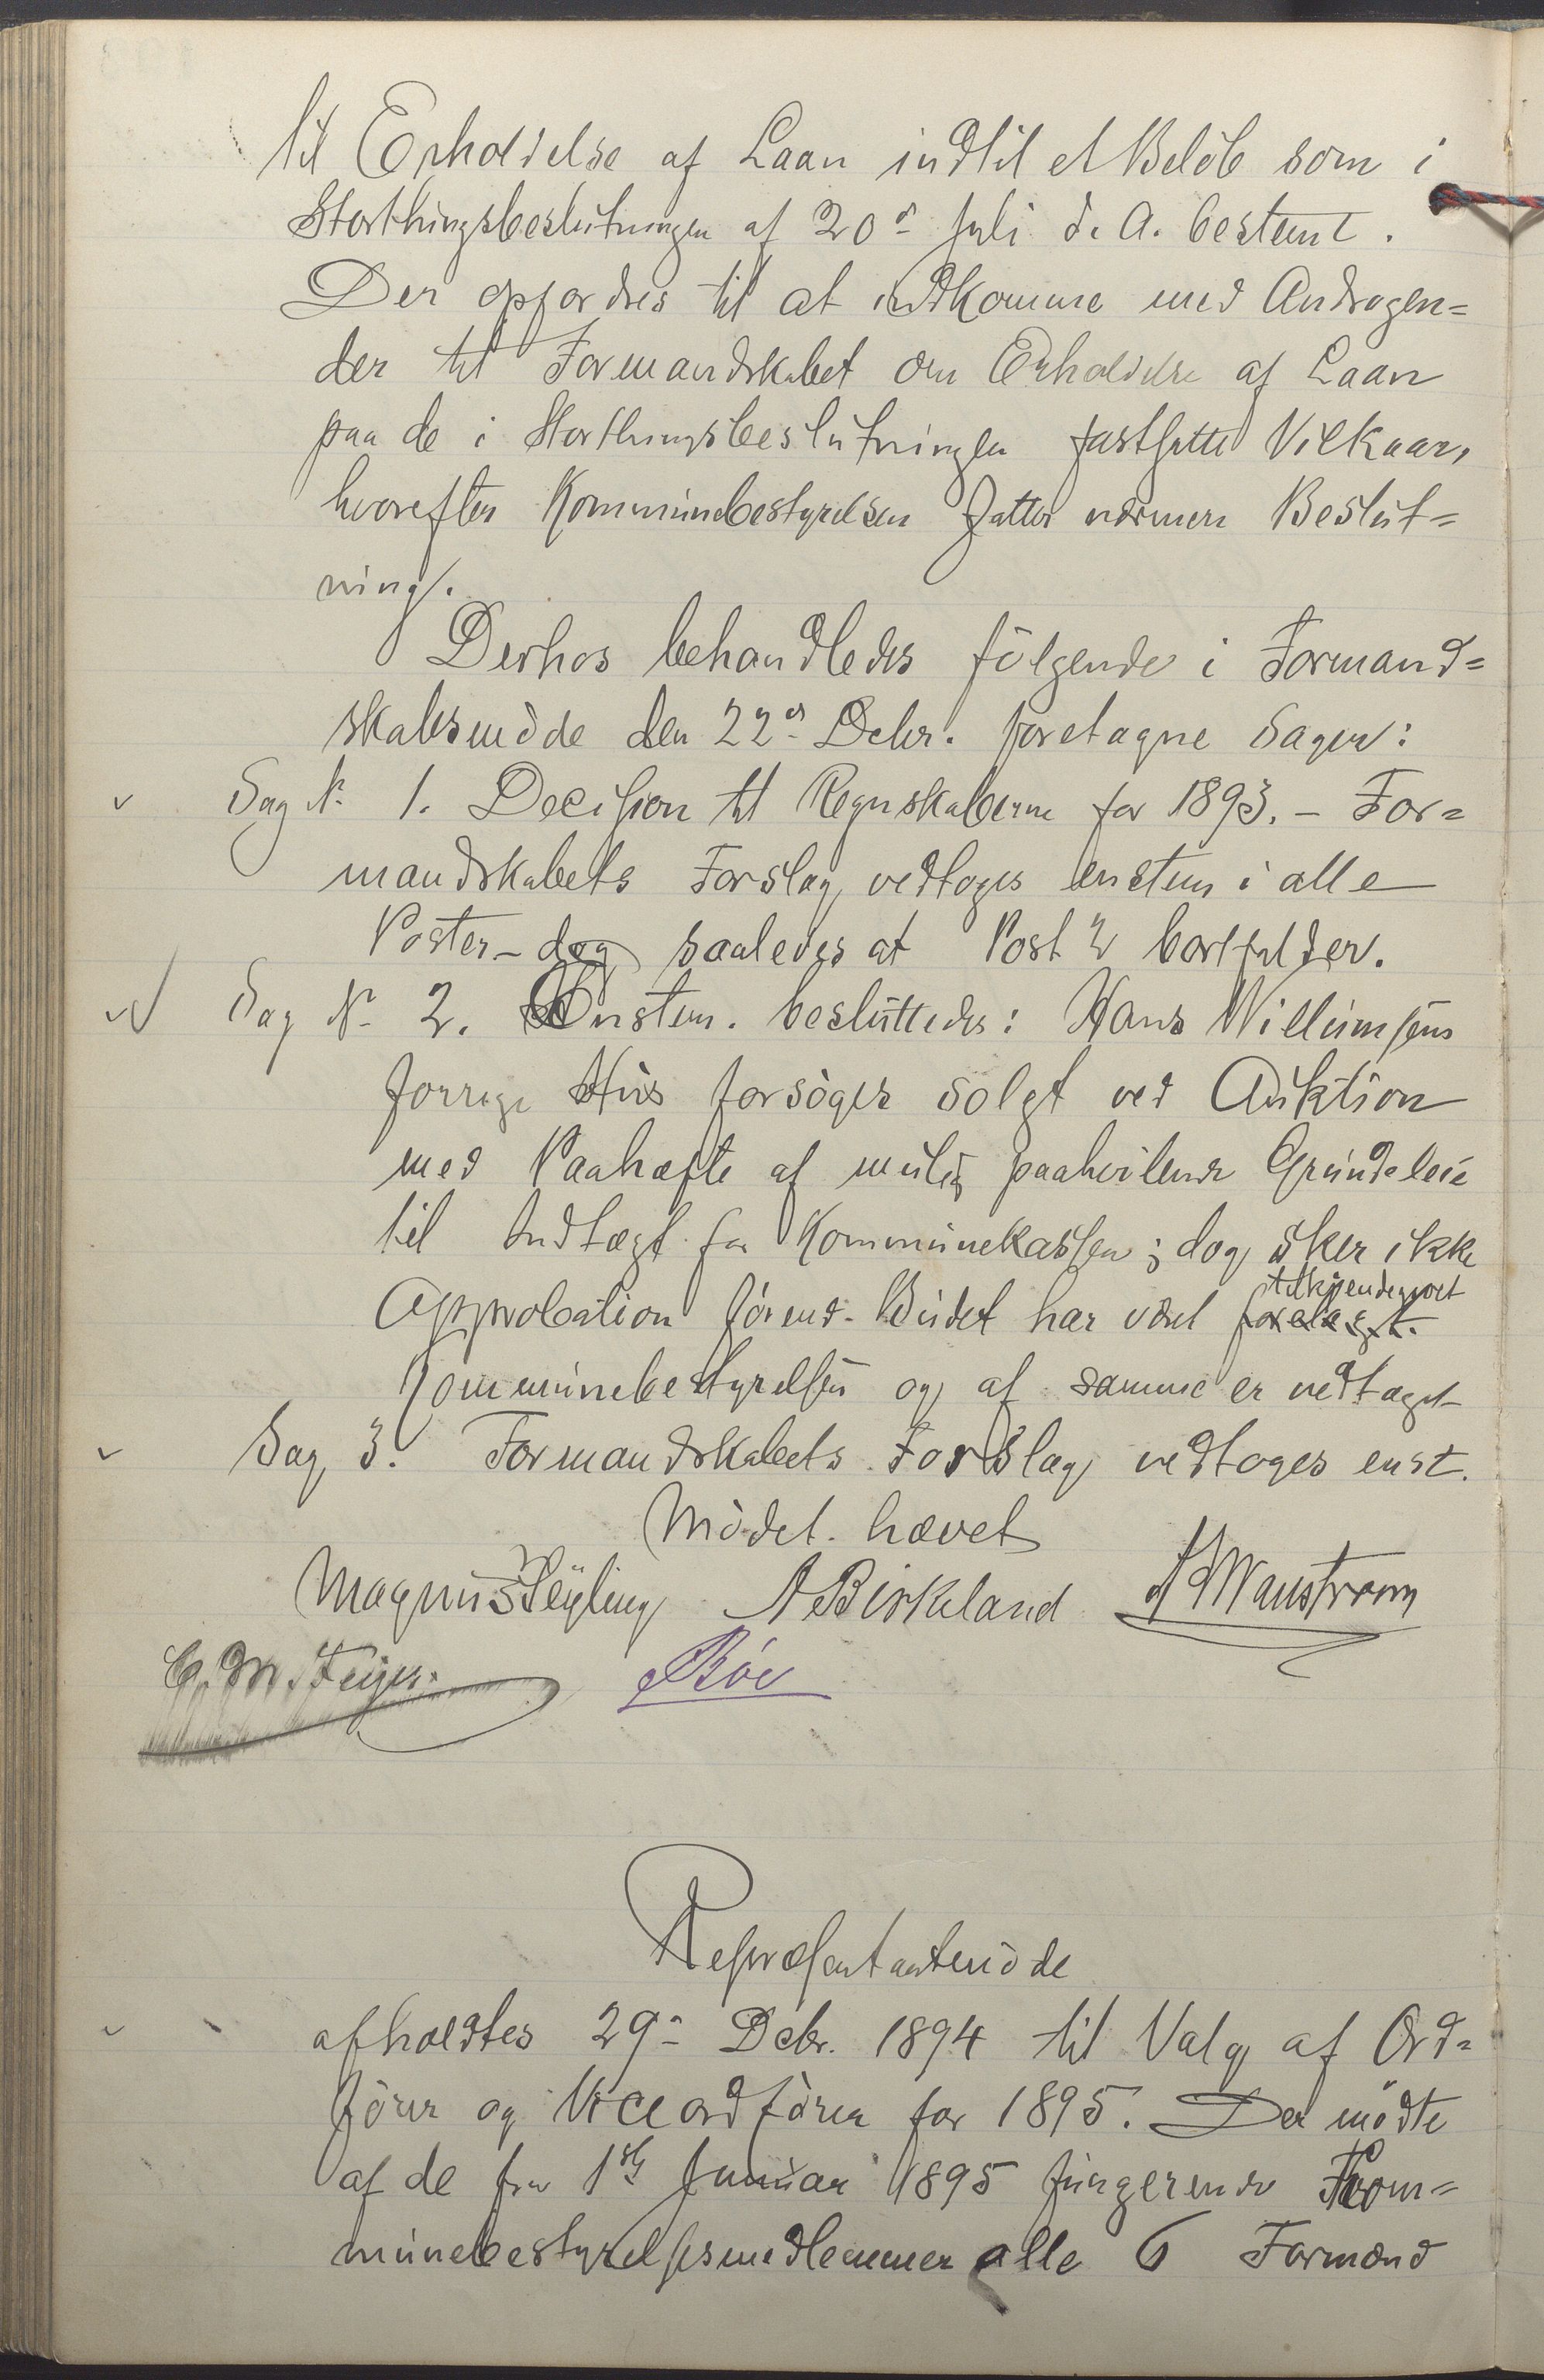 til Erholdelse af Laan indtil et Beløb som i
Storthingsbeslutningen af 20de Juli d. A. bestemt.
Der opfordres til at indkomme med Andragen=
der til Formandskabet om Erholdelse af Laan
paa de i Storthingsbeslutningen fastsatte Vilkaar,
hvorefter Kommunebestyrelsen fatter nærmere Beslut=
ning.
Derhos behandledes følgende i Formand=
skabsmøde den 22de Debr. foretagne Sager:
Sag N. 1. Decision til Regnskaberne for 1893. – For=
mandskabets Forslag vedtoges enstem i alle
Poster – dog saaledes at Post 2 bortfalder.
Sag N. 2. Enstem. besluttedes: Hans Willumsens
forrige Hus forsøges solgt ved Auktion
med Paahæfte af mulig paahvilende Grundeleie
til Indtægt for Kommunekassen; dog sker ikke
tilkjendegivet
Approbation førend Budet har været forelagt.
Kommunebestyrelsen og af samme er vedtaget
Sag 3. Formandskabets Forslag vedtoges enst.
Mødet hævet
Magnus Seyling A Birkeland
C. M. Feyer. Bøe
Repræsentantmøde
afholdtes 29de Debr. 1894 til Valg af Ord=
fører og Viceordfører for 1895. Der mødte
af de fra 1ste Januar 1895 fungerende Kom=
munebestyrelsesmedlemmer alle 6 Formænd